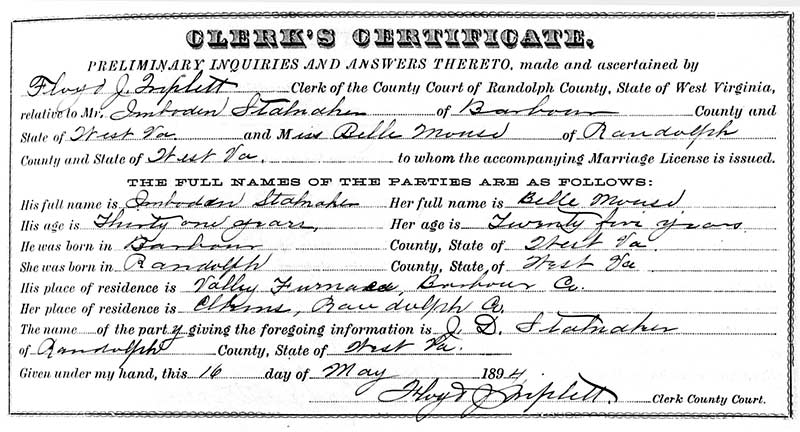 CLERK'S CERTIFICATE.
PRELIMINARY INQUIRIES AND ANSWERS THERETO, made and ascertained by
Floyd J. Triplett Clerk of the County Court of Randolph County, State of West Virginia,
relative to Mr. Imboden Stalnaker of Barbour County and
State of West Va and Miss Belle Mouse of Randolph
County and State of West Va. to whom the accompanying Marriage License is issued.
THE FULL NAMES OF THE PARTIES ARE AS FOLLOWS:
His full name is Imboden Stalnaker Her full name is Belle Mouse
His age is Thirty one years, Her age is Twenty five years.
He was born in Barbour County, State of West Va.
She was born in Randolph County, State of West Va
His place of residence is Valley Furnace, Barbour Co.
Her place of residence is Elkins, Randolph Co.
The name of the party giving the foregoing information is J. D. Stalnaker
of Randolph County, State of West Va.
Given under my hand, this 16 day of May 1894
Floyd J Triplett. Clerk County Court.